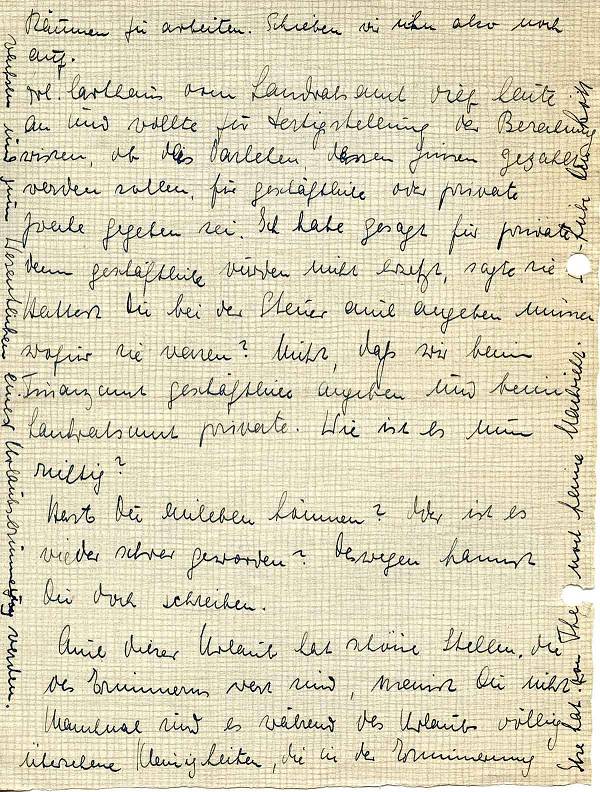 Räumen für arbeiten. Schieben wir uhn also noch
auf.
Frl. Carthaus vom Landratsamt rief heute
an und wollte für Fertigstellung der Berechnung
wissen, ob das Darlehen dessen Zinsen gezahlt
werden sollen, für geschäftliche oder private
Zwecke gegeben sei. Ich habe gesagt für private
denn geschäftliche würden nicht ersetzt, sagte sie
Hattest Du bei der Steuer auch angeben müssen
wofür sie waren? Nicht, daß wir beim
Finanzamt geschäftlich angeben und beim
Landratsamt private. Wie ist es nun
richtig?
Hast Du einleben können? Oder ist es
wieder schwer geworden? Deswegen kannst
Du doch schreiben.
Auch dieser Urlaub hat schöne Stellen, die
des Erinnerns wert sind, meinst Du nicht
Manchmal sind es während des Urlaubs völlig
übersehene Kleinigkeiten, die in der Erinnerung
wachsen und zum Wesentlichen einer Urlaubserinnerung werden.
noch keine Nachricht.